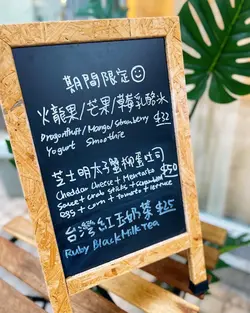 期間限定☺
火龍果/芒果/草莓乳酪冰
Dragonfruit/Mango/Strawberry $32
Yogurt Smoothie
芝士明太子蟹柳蛋吐司
Cheddar Cheese + Mentaiko $50
Sauce + crab sticks + cucumber
eggs + corn + tomato + lettuce
台灣紅玉奶茶 $25
Ruby Black Milk Tea